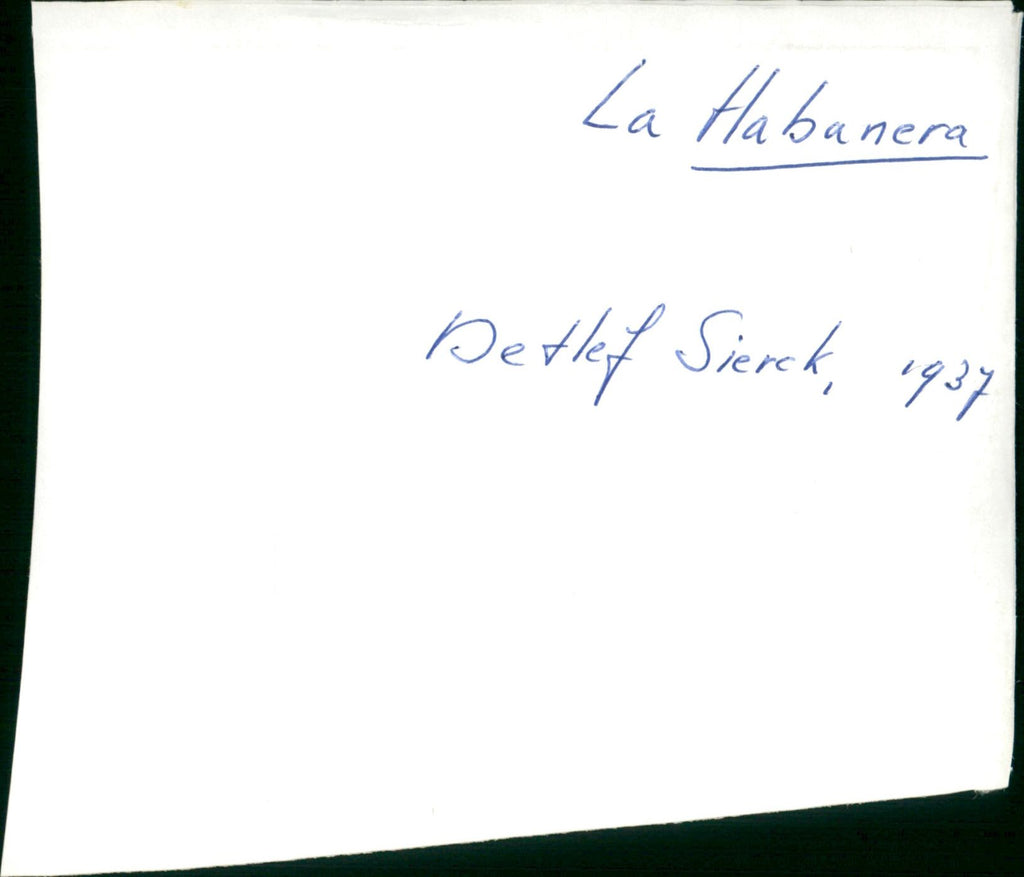 La Habanera
Detlef Sierck, 1937